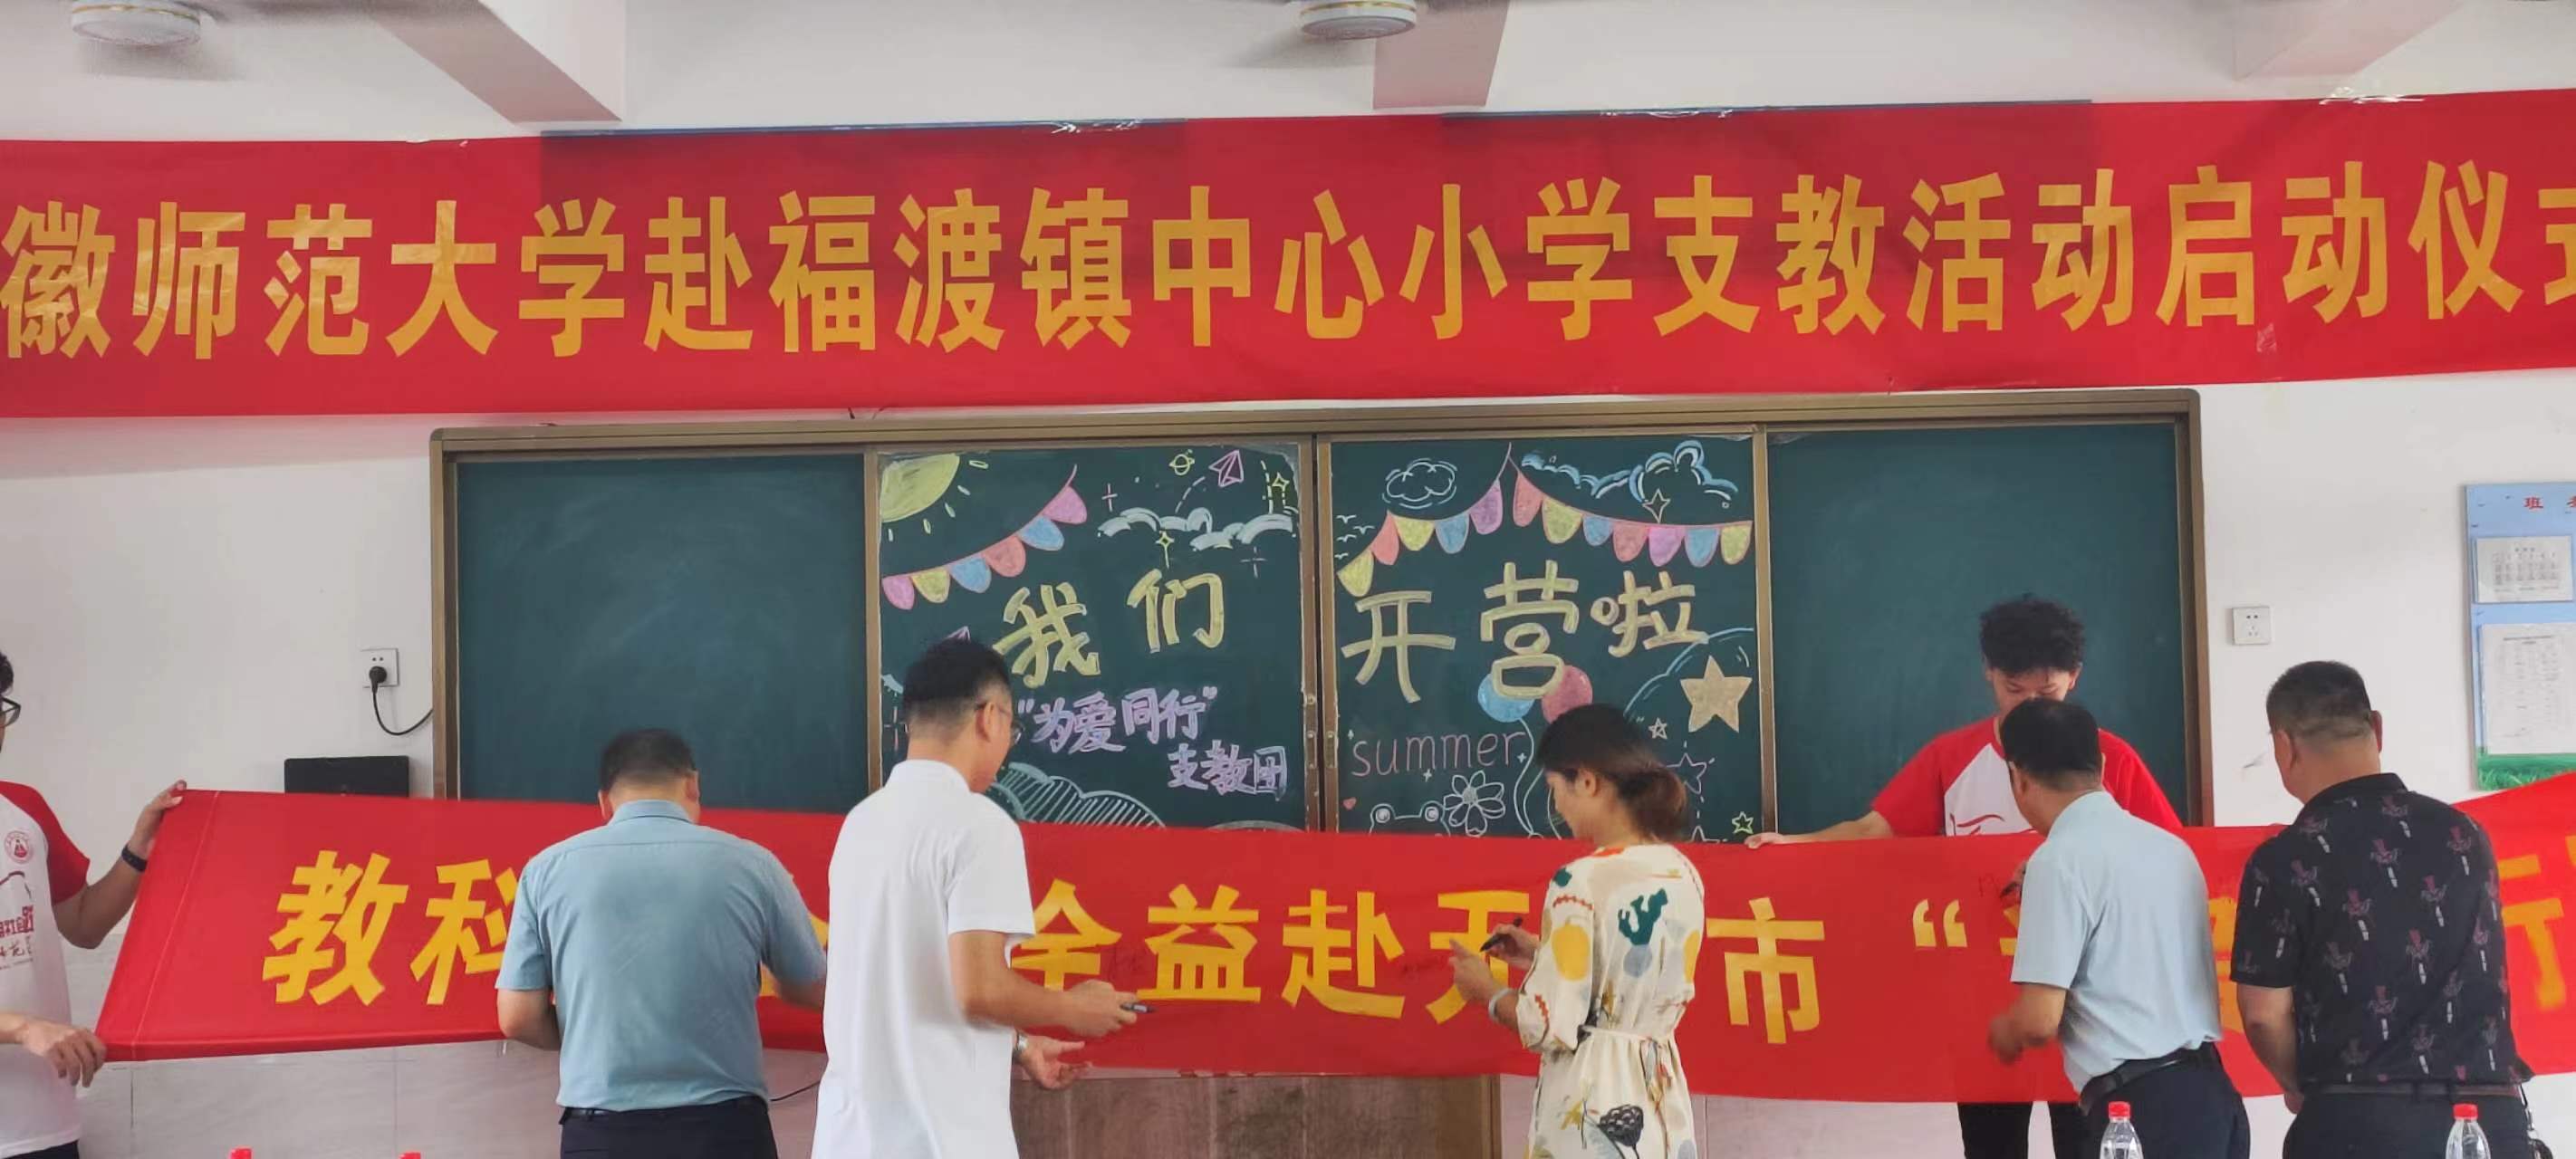 徽师范大学赴福渡镇中心小学支教活动启动仪式
我们
开营啦
"为爱同行"
支教团
summer
教科
全益赴无
市"
行
班